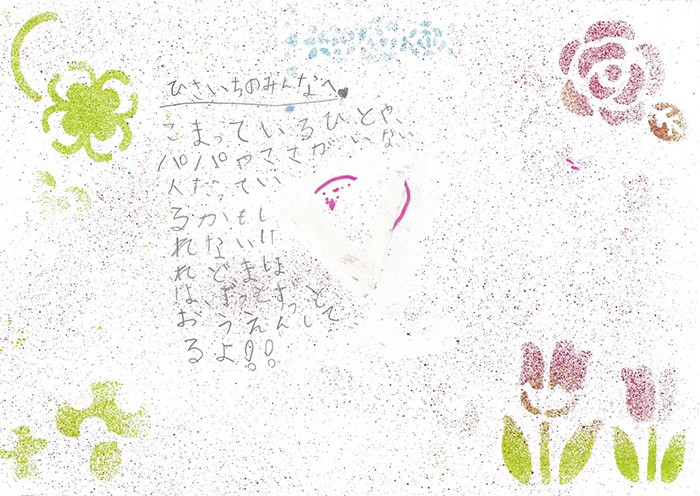 ひさいちのみんなへ♥
こまっているひとや、
パパやママがいない
人だってい
るかもし
れないけ
れどまほ
は、ずっとずっと
おうえんして
るよ!!